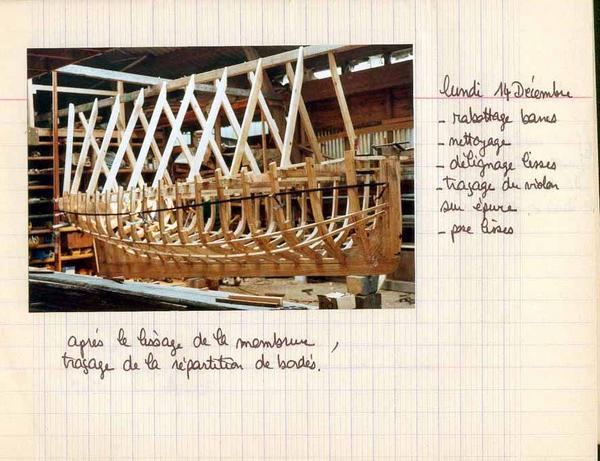 lundi 14 Décembre
- rabottage bancs
- nettoyage
- délignage lisses
- traçage du violon
sur épure
- pose lisses
après le lissage de la membrure,
traçage de la répartition de bordés.